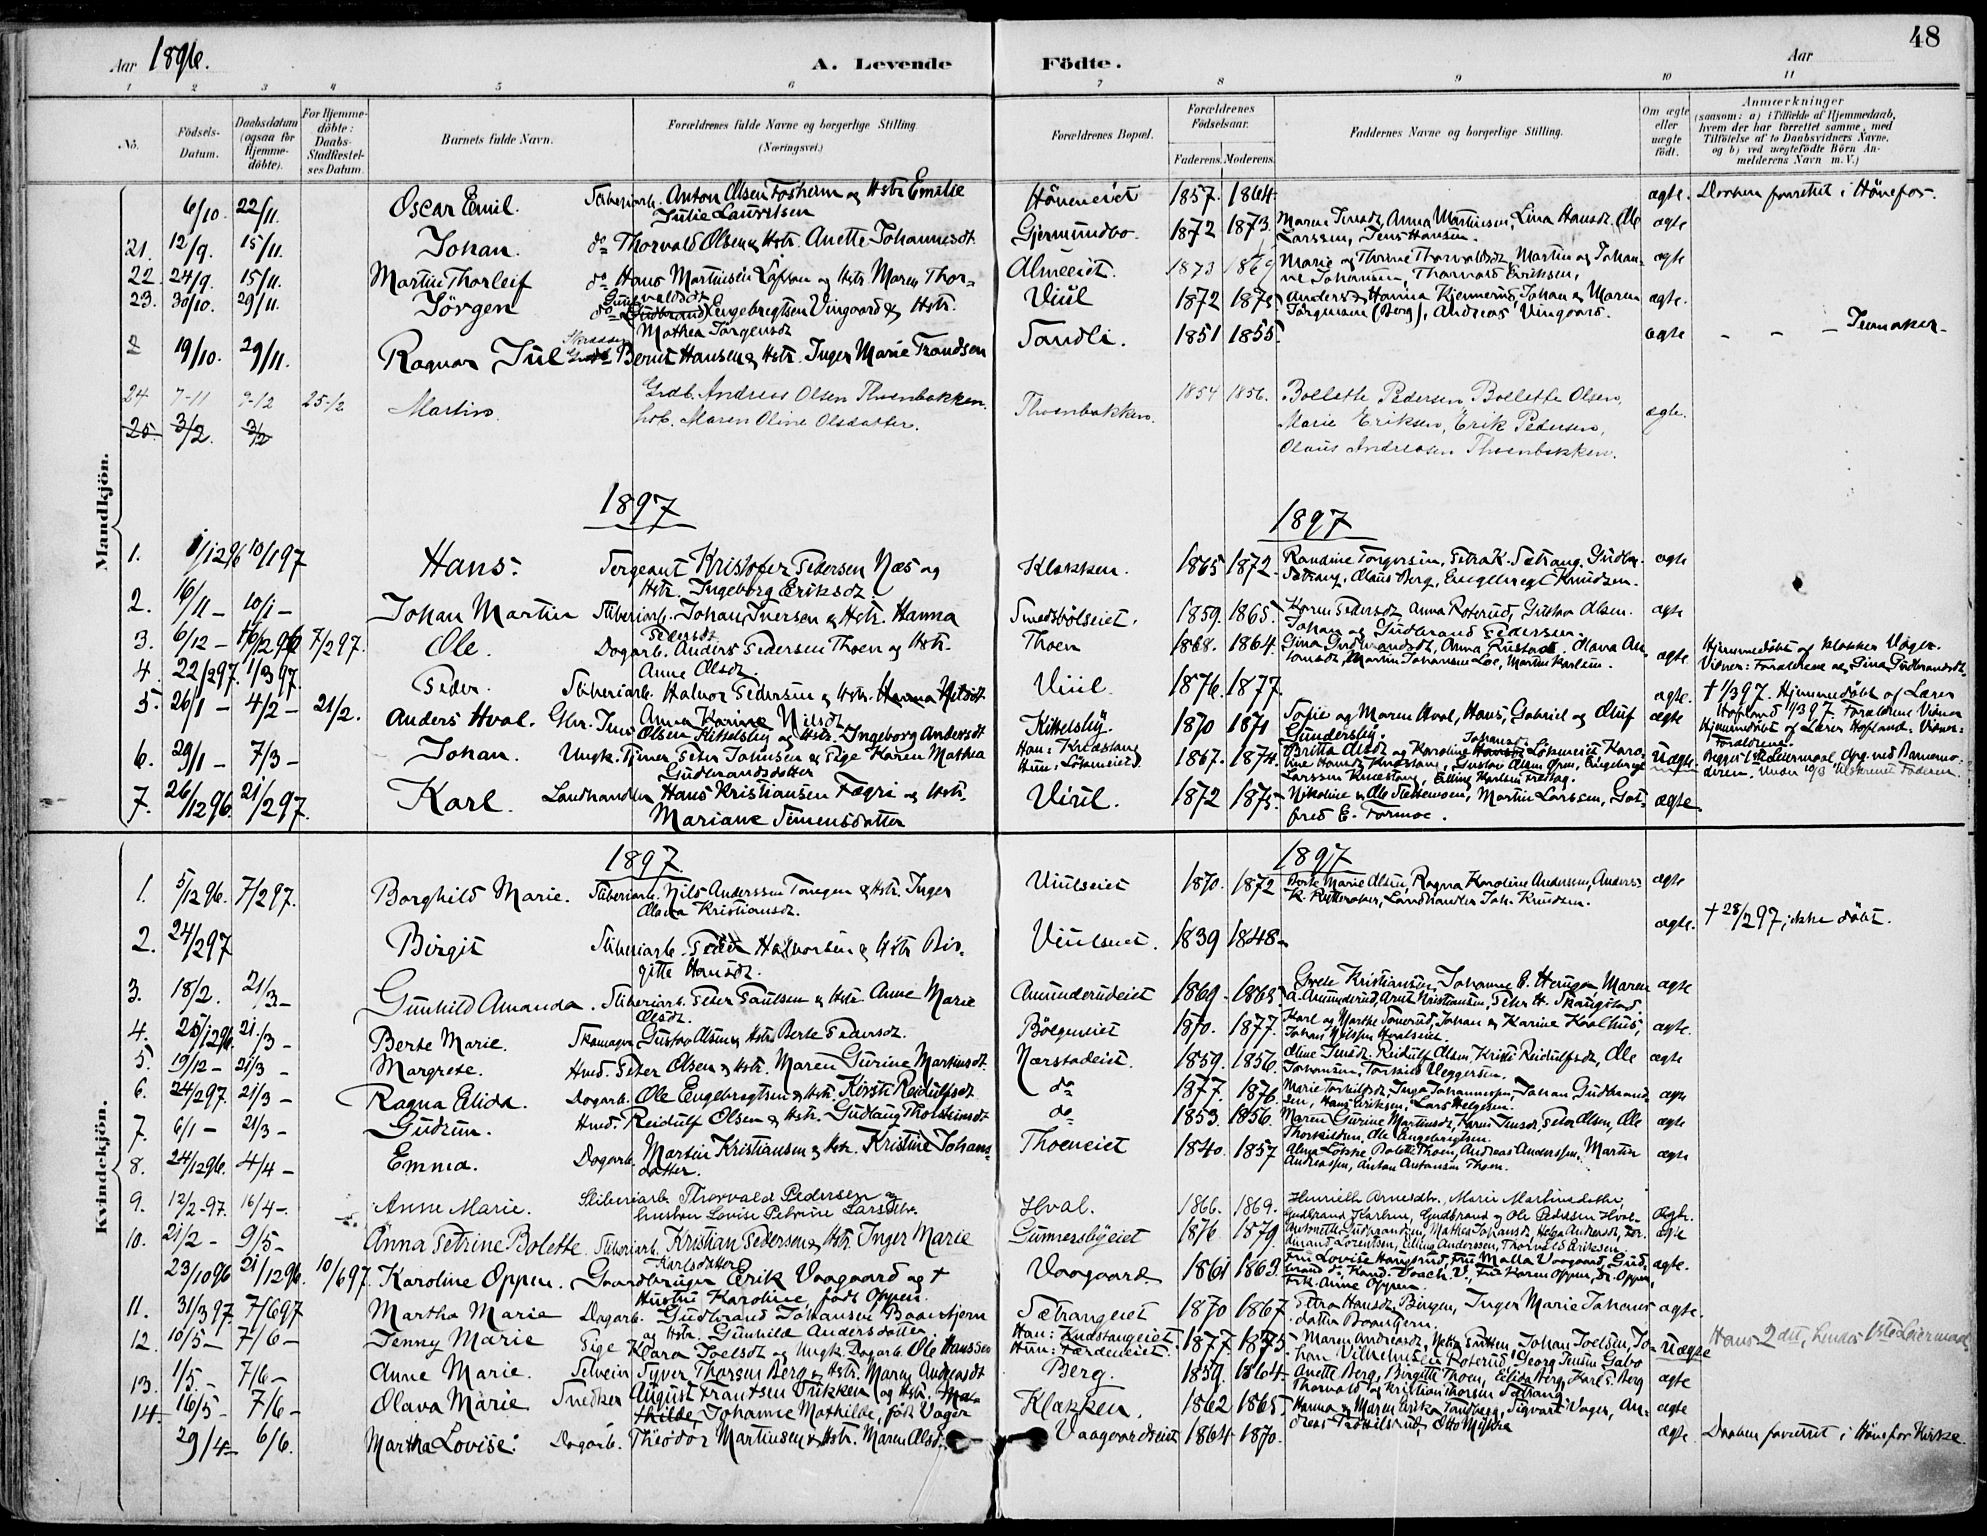 48
Aar 1896.
A. Levende Födte.
Aar
1 2 3 4 5 6 7 8 9 10 11
No.
Födsels-Datum.
Daabsdatum (ogsaa for Hjemme-döbte).
For Hjemme-döbte: Daabs-Stadfæstel-ses Datum.
Barnets fulde Navn.
Forældrenes fulde Navne og borgerlige Stilling. (Næringsvei.)
Forældrenes Bopæl.
Forældrenes Födselsaar.
Faderens. Moderens.
Faddernes Navne og borgerlige Stilling.
Om ægte eller uægte födt.
Anmærkninger
(saasom: a) i Tilfælde af Hjemmedaab, hvem der har forrettet samme, med Tilföielse af to Daabsvidners Navne, og b) ved uægtefödte Börn An-melderens Navn m. V.)
Mandkjön.
6/10. 22/11. Oscar Emil. Sliberiarb. Anton Olsen Fosheim og Hstr Emilie Julie Lauritsen Höneneiet 1857. 1864. ægte. Daaben forrettet i Hönefos.
21. 12/9. 15/11. Johan. do Thorvald Olsen & Hstr. Anette Johannesdt. Gjermundbo. 1872 1873. Maren Jensdt, Anna Martinsen, Lina Hansdt. Ole Larssen, Jens Hansen. ægte
22. 24/9. 15/11. Martin Thorleif do Hans Martinsen og Hstr Maren Thorvaldsdt Almeeiet. 1873 1869 Marie og Thrine Thorvaldsdt, Martin og Johanne Johansen, Thorvald Eriksen, ægte
23. 30/10. 29/11. Jörgen do Gudbrand Engebregtsen Vingaard & Hstr. Mathea Jörgensdt Viul 1872 1875 Anders & Hanna Kjennerud, Johan & Maren Jörgensen (Berg), Andreas Vingaard. ægte.
2 19/10. 29/11. Ragnar Jul Bernt Hansen & Hstr. Inger Marie Trondsen Sandli. 1851 1855. ægte - - - Jevnaker.
24 7-11 9-12 25-12 Martin Grdb. Andreas Olsen Thoenbakken. Hstr. Maren Oline Olsdatter. Thoenbakken. 1854 1856. Bollette Pedersen Bollette Olsen, Marie Eriksen, Erik Pedersen, Olaus Andreasen Thoenbakken. ægte.
25 3/2. 3/2
1897 1897
1. 1/1296 10/197 Hans. Sergeant Kristofer Pedersen Næs og Hstr. Ingeborg Eriksdt. Klækken. 1865 1872. Randine Torgersen, Petra K. Sætrang, Gudbr. Sætrang, Olaus Berg, Engebregt Knudsen. ægte
2. 16/11 – 10/1 – Johan Martin Sliberiarb. Johan Iversen & Hstr. Hanna Pedersdt. Smedsbölseiet. 1859. 1865. Karen Pedersdt, Anna Roterud, Gustav Olsen. Johan og Gudbrand Pedersen. ægte
3. 6/12 – 16/1296 7/297. Ole. Dagarb. Anders Pedersen Thoen og Hstr. Anne Olsdt. Thoen 1868. 1864. Gina Gudbrandsdt, Anna Rustad. Olava Antonsdt, Martin Johansen Loe, Martin Karlsen. ægte Hjemmedöbt af Klokker Vager. Vidner: Forældrene og Gina Gudbrandsdt.
4. 22/297. 1/397. Peder. Sliberiarb. Halvor Pedersen & Hstr. Hanna Nilsdt Anna Karine Nilsdt Viul. 1876. 1877. ægte. † 1/397. Hjemmedöbt af Lærer Hofland 1/397. Forældrene Vidner
5. 26/1 – 4/2 – 21/2. Anders Hval. Gbr. Jens Olsen Kittelsby og Hstr. Ingeborg Andersdt Kittelsby. 1870 1871 Sofie og Maren Hval, Hans, Gabriel og Oluf Gundersby. ægte Hjemmedöbt af Lærer Hofland. Vidner: Forældrene.
6. 29/1 – 7/3 – Johan. Ungk. Tjener Peter Johnsen & Pige Karen Mathea Gudbrandsdatter Han: Knestang Hun: Lökmeeiet 1867. 1874. Britta Olsdt og Karoline Lökmeeiet, Karoline Hansdt Knestang, Gustav Olsen Oppen, Engebregt Larssen Knestang, Edling Karlsen Fretlag. uægte. Begges 1ste Leiermaal. Opg. ved Barnemoderen.
7. 26/1296. 21/297. Karl. Landhandler Hans Kristiansen Fægri og Hstr. Mariane Simensdatter Viul. 1872 1875. Nikoline & Ole Slettemoen, Martin Larssen, Gotfred E. Formoe. ægte
Kvindekjön.
1897 1897
1. 5/1296. 7/297. Borghild Marie. Sliberiarb. Nils Anderssen Tangen & Hstr. Inger Olava Kristiansdt. Viulseiet 1870. 1872 Berte Marie Olsen, Ragna Karoline Andersen, Anders K. Rytteraker, Landhandler Joh. Knudsen. ægte
2. 24/297 Birgit Sliberiarb. Peder Halvorsen & Hstr Birgitte Hansdt. Viulseiet. 1839 1848. ægte. † 28/297, ikke döbt.
3. 18/2. 21/3 – Gunhild Amanda. Sliberiarb. Peter Paulsen & Hstr. Anne Marie Olsdt. Amunderudeiet 1869. 1865. Grete Kristiansen, Johanne E. Haugen Maren A. Amunderud, Arnt Kristiansen, Peter H. Skaugstad. ægte
4. 25/1296. 21/3 – Berte Marie. Skomager Gustav Olsen & Hstr Berte Pedersdt. Bölgeneiet 1870. 1877. Karl og Marthe Tomerud, Johan & Karine Kaalhus, Johan Nilssen Hvalseiet. ægte.
5. 19/12 – 21/3 – Margrete. Hmd. Peter Olsen & Hstr. Maren Gurine Martinsdt. Nærstadeiet 1859. 1856. Oline Jensdt, Reidulf Olsen, Kristi Reidulfsdt, Ole Johansen, Torkild Veggersen. ægte
6. 24/297. 21/3 – Ragna Elida. Dagarb. Ole Engebregtsen & Hstr. Kirsti Reidulfsdt do 1877. 1876. Marie Torkildsdt, Inga Johannessen, Johan Gudbrandsen, Hans Eriksen, Lars Helgesen. ægte
7. 6/1 – 21/3 – Gudrun. Hmd. Reidulf Olsen & Hstr. Gudlaug Tholsteinsdt do 1853. 1856. Maren Gurine Martinsdt, Karen Jensdt, Peter Olsen, Ole Thorkildsen, Ole Engebregtsen. ægte
8. 24/1296. 4/4 – Emma. Dagarb. Martin Kristiansen & Hstr. Kristine Johansdatter. Thoeneiet 1840. 1857 Alma Lökke, Bolette Thoen, Andreas Anderssen, Martin Andreassen, Anton Antonsen Thoen. ægte
9. 12/2-97. 16/4 – Anne Marie. Sliberiarb. Thorvald Pedersen & Hustru Lovise Petrine Larsdtr. Hval. 1866. 1869. Henriette Arnesdtr., Marie Martinsdatter, Gudbrand Karlsen, Gudbrand & Ole Pedersen Hval. Ægte.
10. 21/2 – 9/5 – Anna Petrine Bolette. Sliberiarb. Kristian Pedersen & Hstr. Inger Marie Karlsdatter Gunnersbyeiet 1876. 1879. Antonette Gudbrandsen, Mathea Johansdt, Helga Andersdt, Ferdinand Lorentsen, Edling Anderssen, Thorvald Eriksen. ægte
23/1096 21/1296. 10/697. Karoline Oppen. Gaardbruger Erik Vaagaard og † Hustru Karoline, födt Oppen. Vaagaard 1861 1863. Fru Lovise Haugsrud, Fru Malla Vaagaard, Gudbrand do, Kand. Joach. V., Fru Karen Oppen, Dr. Oppen, Frk. Anne Oppen. ægte.
11. 31/397. 7/697 Martha Marie Dagarb. Gudbrand Johansen Baarstjern og Hstr. Gunhild Andersdatter Sætrangeiet 1870 1867. Petra Hansdt. Bingen, Inger Marie Johansdatter Baangen. ægte.
12. 10/5 – 7/6 – Jenny Marie Pige Klara Joelsdt og Ungk. Dagarb. Ole Hanssen Han: Knestangeiet Hun: Færdeneiet. 1877. 1875. Maren Andreasdt, Netty Putten, Johan Joelsen, Johan Vilhelmsen Roterud, Georg Jensen Gabo uægte Hans 2det, hendes 1ste Leiermaal
13. 1/5 – 7/6 – Anne Marie. Selveier Syver Thorsen Berg & Hstr. Maren Andreasdt Berg. 1859. 1864. Anette Berg, Birgitte Thoen, Elida Berg, Karl S. Berg Thorvald og Kristian Thorsen Sætrang. ægte
14. 16/5 – 7/6 – Olava Marie Snedker August Frantsen Trikken og Hstr. Mathilde Johanne Mathilde, födt Vager Klækken. 1862 1865. Hanna & Maren Erika Tandberg, Sigvart Vager, Andreas Torkilsrud, Otto Myhra ægte
29/4 – 6/6. Martha Lovise. Dagarb. Theodor Martinsen & Hstr. Maren Olsdt. Vaagaardseiet 1864 1870. ægte. Daaben forrettet i Hönefos Kirke.